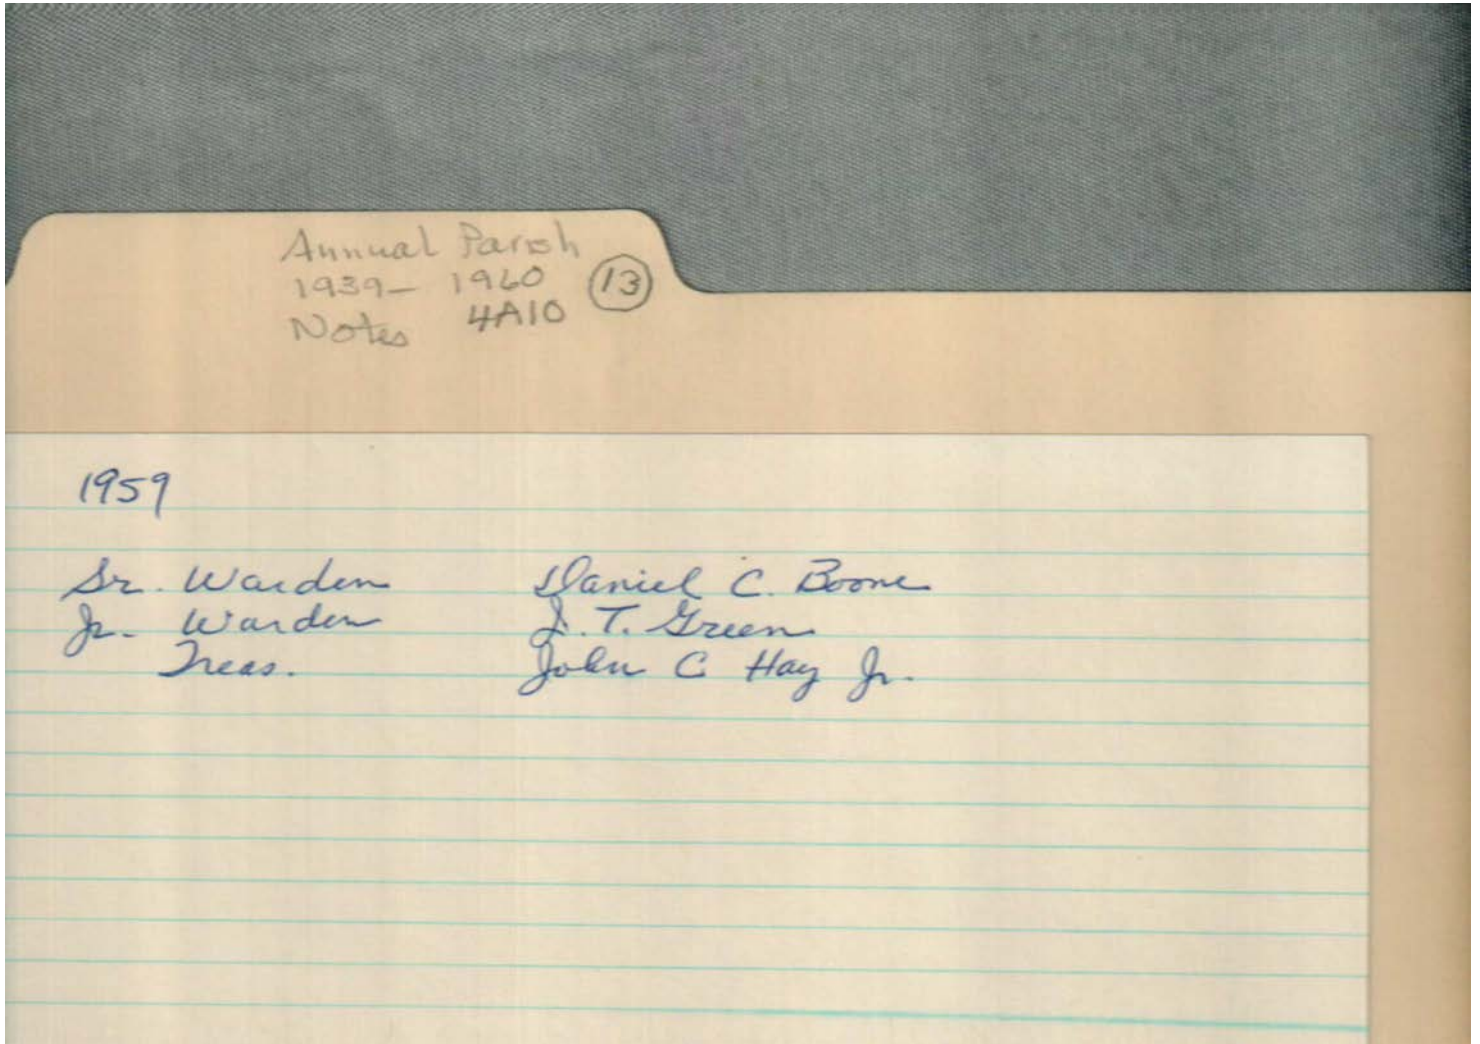 Annual Parish
1939- 1960 13
Notes 4A10
1959
Sr. Warden Daniel C. Boone
Jr. Warden J. T. Green
Treas. John C Hay Jr.